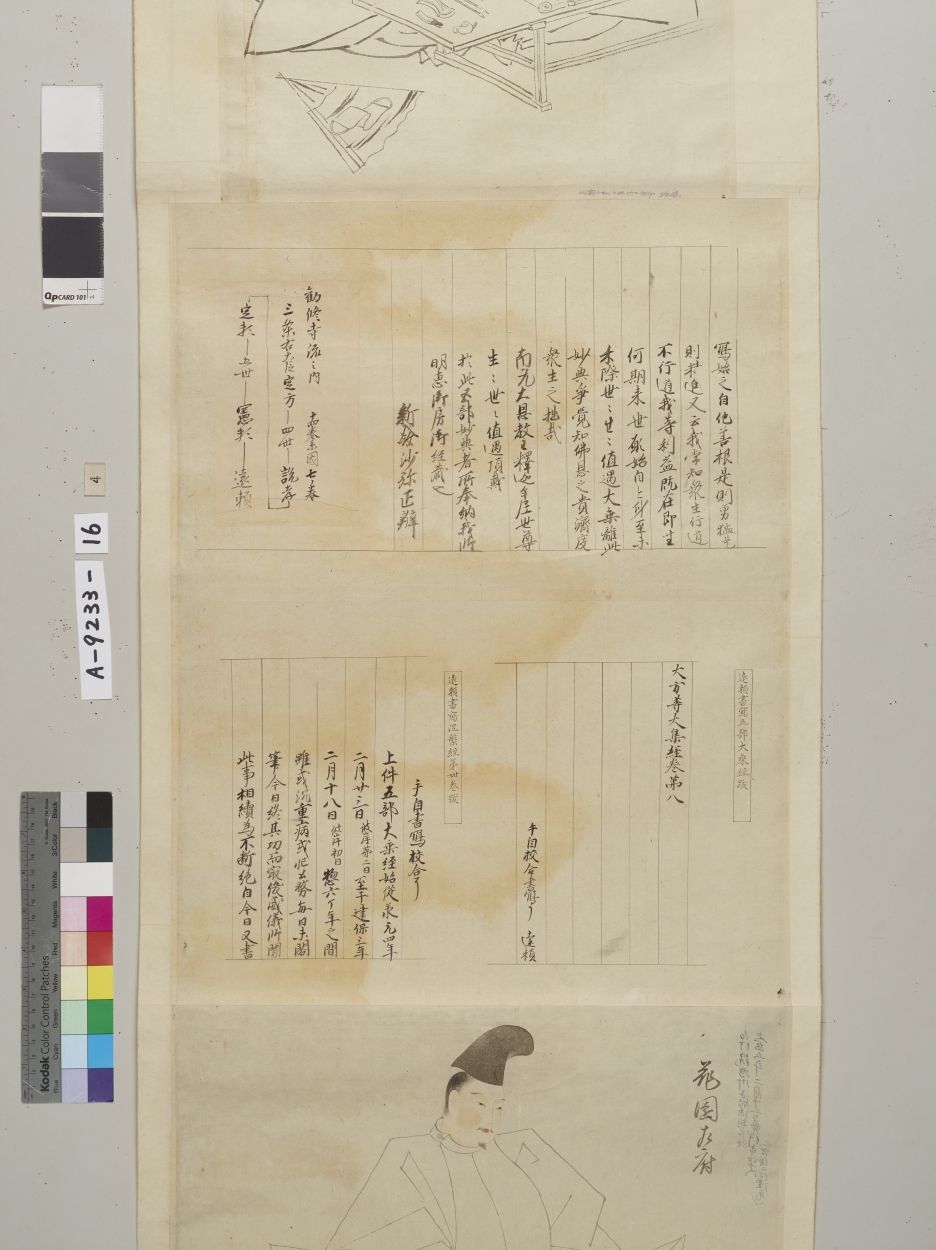 遠頼書写五部大乗経跋
大方等大集経巻第八
手自校合書写了　遠頼
遠頼書写涅槃経第卅巻跋
手自書写校合了
上件五部大乗経始従承元四年
二月廿三日彼岸第二日至于建保三年
二月十八日彼岸初日惣六ケ年之間
雖或沉重病或忙公務毎日未闕
筆今日終其功而最後威儀所闕
此事相續為不断絶自今日又書
寫始之自他善根是則勇猛先
則精進又云我常知衆生行道
不行道我等利益既在即生
何期未世敬始自今身至未
未際世々生々値遇大乗離此
妙典争覚知佛恩之貴濟度
衆生之拙哉
南无大恩教主釋迦牟尼世尊
生々世々値遇頂戴
於此五部妙典者所奉納我所
明恵御房御経蔵也
新發沙弥正辯
勧修寺流之内
三条右大臣定方—四世—説孝
十四巻系図七巻
定頼—五世—憲頼—遠頼
花園左府
A-9233-16
4
QpCARD 101 v4
Kodak Color Control Patches
Blue
Cyan
Green
Yellow
Red
Magenta
White
3/Color
Black